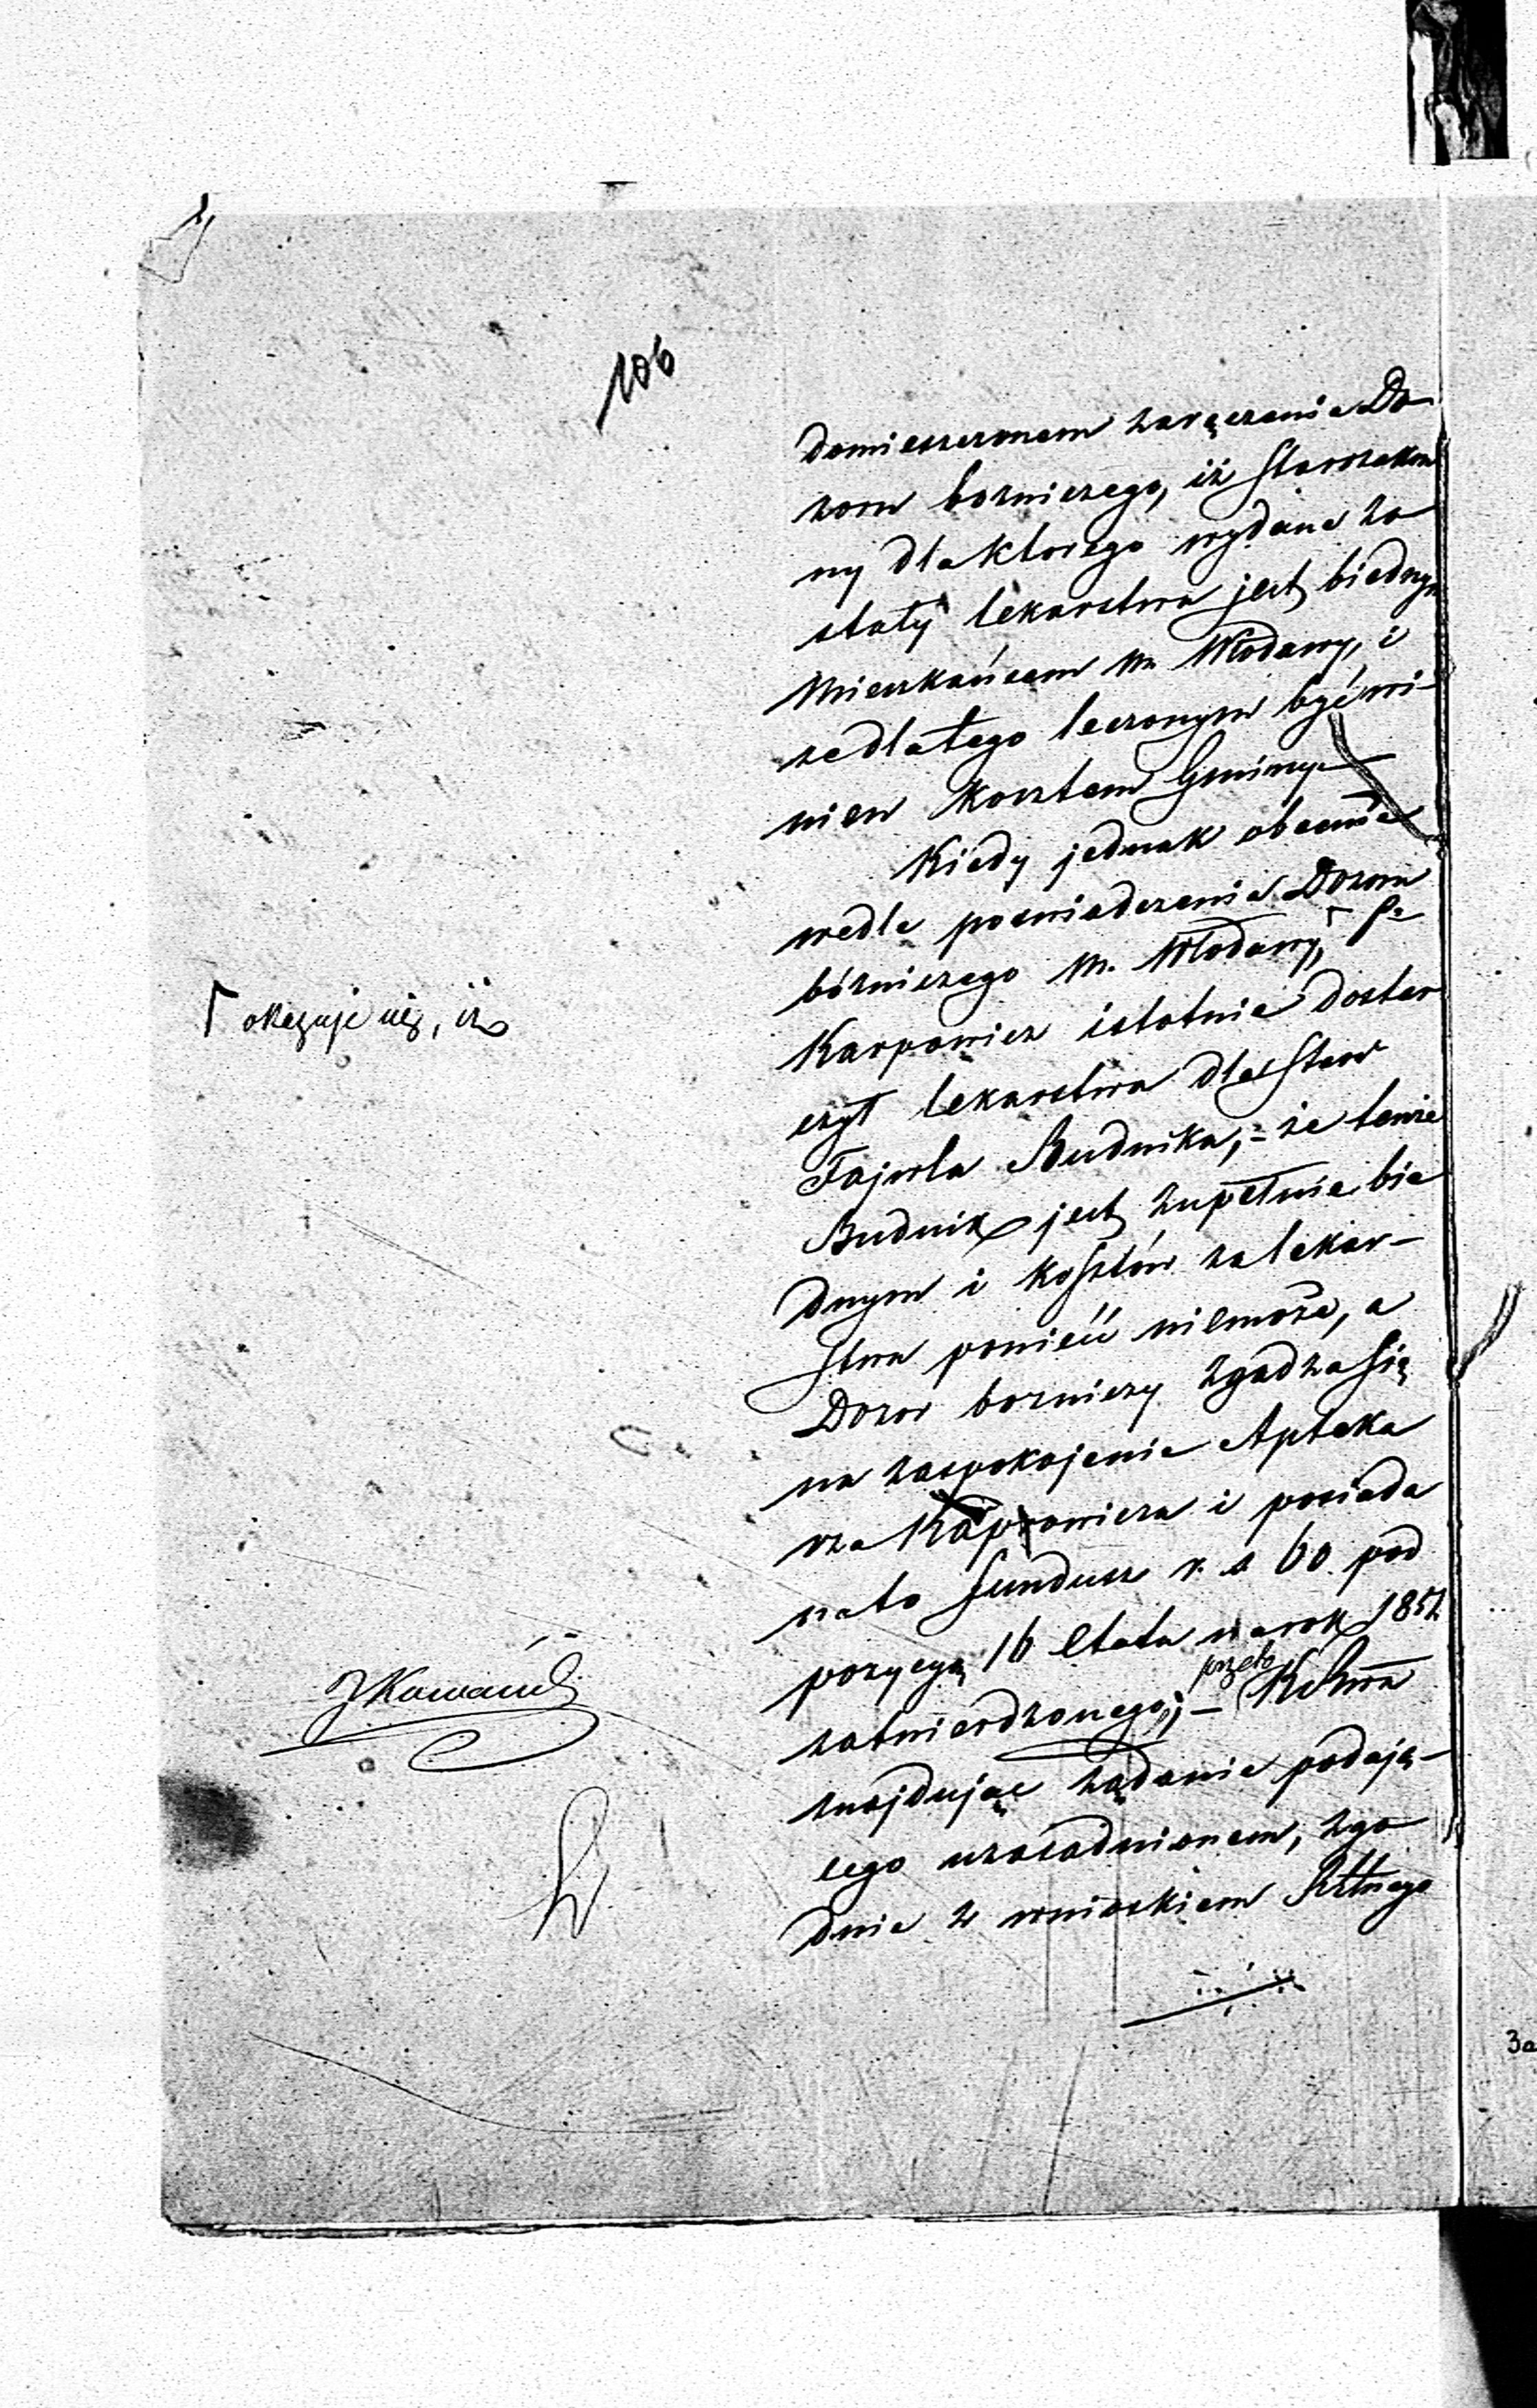 106
domieszczonem zaręczenie Do
zoru bożniczego, iż Starozakon
ny dla ktorego wydane zo
stały lekarstwa jest biednym
Mieszkańcem m. Włodawy, i
że dla tego leczonym być wi-
nien kosztem Gminy.—
Kiedy jednak obecnie
wedle poswiadczenia Dozoru
bóżniczego m. Włodawy, ⌈ P.
⌈ okazuje się, iż
Karpowicz istotnie dostar
czył lekarstwa dla Star
Fajwla Budnika, - że tenże
Budnik jest zupełnie bie
dnym i kosztów za lekar-
stwa ponieść niemoże, a
Dozor bożniczy zgadza się
na zaspokojenie Apteka
rza Kaprowicza i posiada
na to fundusz r. s. 60. pod
pozycyą 16 Etatu na rok 1852
zatwierdzonego; - przeto
znajdując żądanie podają-
cego uzasadnionem, zgo
dnie z wnioskiem